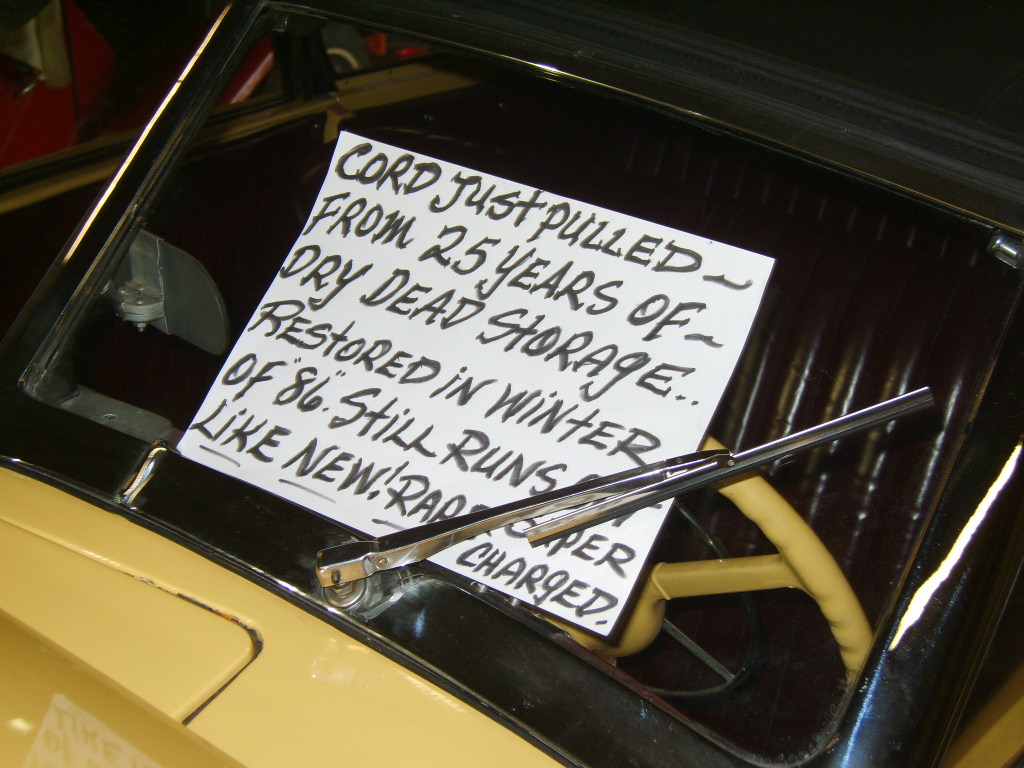 CORD JUST PULLED~
FROM 25 YEARS OF~
DRY DEAD STORAGE..
RESTORED IN WINTER
OF "86". STILL RUNS
LIKE NEW! RARE SUPER
CHARGED.
LIKE
OF